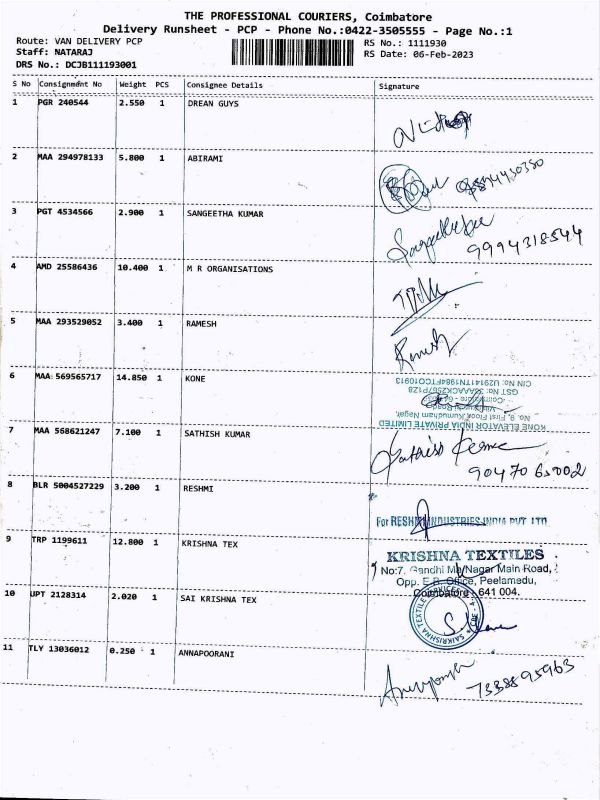 THE PROFESSIONAL COURIERS, Coimbatore
Delivery Runsheet - PCP - Phone No.:0422-3505555 - Page No.:1
Route: VAN DELIVERY PCP
RS No.: 1111930
Staff: NATARAJ
RS Date: 06-Feb-2023
DRS No.: DCJB111193001
S No Consignment No Weight PCS Consignee Details Signature
1 PGR 240544 2.550 1 DREAN GUYS
2 MAA 294978133 5.800 1 ABIRAMI
3 PGT 4534566 2.900 1 SANGEETHA KUMAR
9994318544
4 AMD 25586436 10.400 1 M R ORGANISATIONS
5 MAA 293529052 3.400 1 RAMESH
Ramesh
6 MAA 569565717 14.850 1 KONE
KONE ELEVATOR INDIA PRIVATE LIMITED
No. 9, First Floor, Kumudham Nagar,
CIN No: U29141TN1984FTC010913
7 MAA 568621247 7.100 1 SATHISH KUMAR
90470 65002
8 BLR 5004527229 3.200 1 RESHMI
For RESHMI INDUSTRIES INDIA PVT LTD
9 TRP 1199611 12.800 1 KRISHNA TEX
KRISHNA TEXTILES
No:7, Gandhi Ma Nagar Main Road,
Opp. E.B. Office, Peelamedu,
Coimbatore - 641 004.
10 UPT 2128314 2.020 1 SAI KRISHNA TEX
SAIKRISHNA TEXTILE
11 TLY 13036012 0.250 1 ANNAPOORANI
7338895963